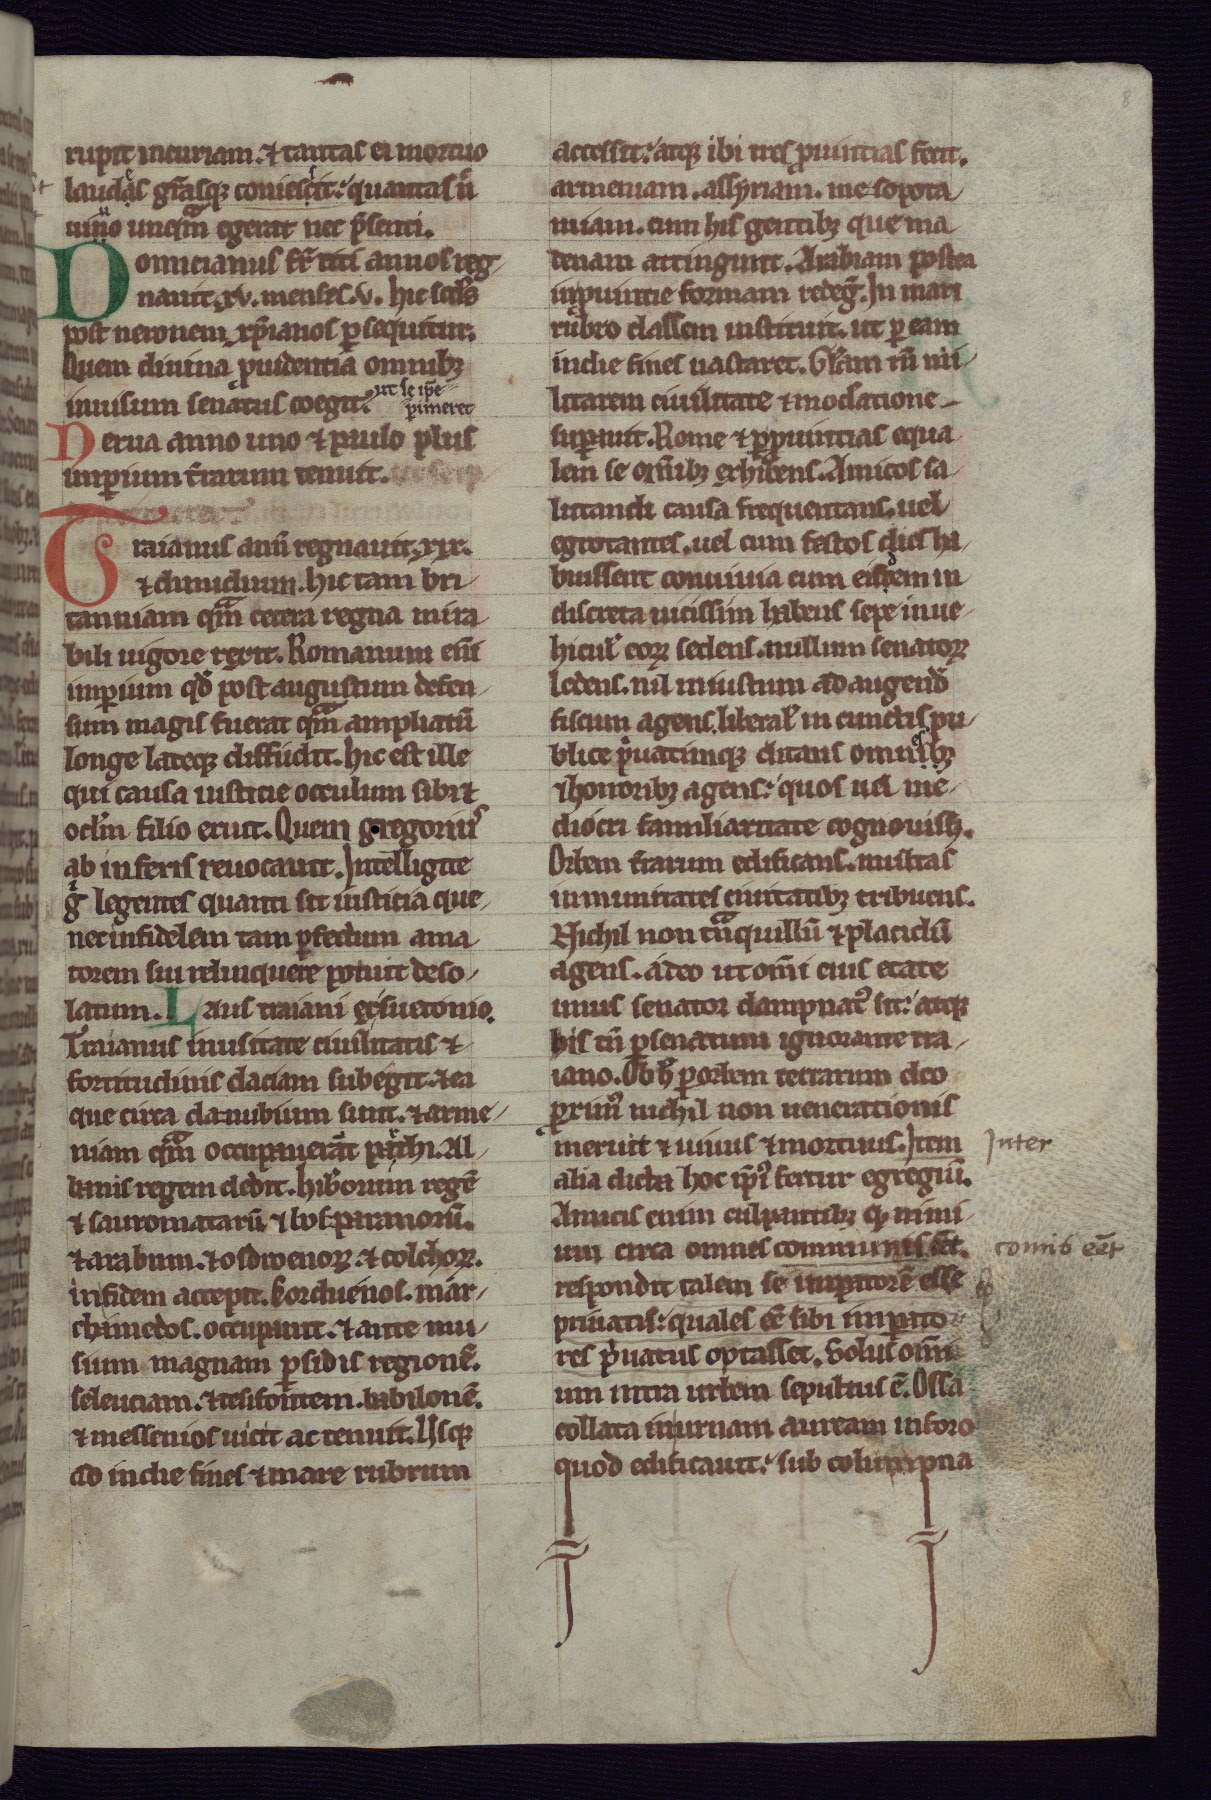 rupit incuriam. ⁊ tantas ei mortuo
laudes gr̄asq; coniescit: quantas ñ
uiuo unqᵃm egerit nec p̄senti.
Domicianus fr̄ titi annos reg-
nauit .xv. menses .v. hic scd̄s
post neronem xp̄ianos ꝑsequitur.
Quem diuina ꝓuidentia omnibꝫ
inuisum senatus coegit. ut se ip̄e
ꝑimeret
Nerua anno uno ⁊ paulo plus
imꝑium t̄rarum tenuit.
Traianus ann̄ regnauit .xix.
⁊ dimidium. hic tam bri-
tanniam qᵃm cetera regna mira
bili uigore rexit. Romanum eni̅
imꝑium qd̄ post augustum defen-
sum magis fuerat qᵃm ampliatū
longe lateq; diffudit. hic est ille
qui causa iusticie occulum sibi ⁊
ocl̄m filio eruit. Quem gregoriꝰ
ab inferis reuocauit. Intelligite
gͥ legentes quanti sit iusticia que
nec infidelem tam ꝑfectum ama
torem sui relinquere potuit deso-
latum. Laus traiani ex suetonio.
Traianus inusitate ciuilitatis ⁊
fortitudinis daciam subegit. ⁊ ea
que circa danubium sunt. ⁊ arme-
niam qᵃm occupauerāt parthi. Al-
banis regem dedit. hiberorum regē
⁊ sauromatarū ⁊ bosphrianorū.
⁊ arabum. ⁊ osdroenorꝝ. ⁊ colchorꝝ.
in fidem accepit. Corduenos. mar-
chimedos. occupauit. ⁊ ante mu-
sium magnam ꝑsidis regionē.
seleuciam. ⁊ tesifontem. babilonē.
⁊ messenios uicit ac tenuit. Usq;
ad indie fines ⁊ mare rubrum
accessit: atq; ibi tres ꝓuintias fecit.
armeniam. assyriam. mesopota
miam. cum his gentibꝫ que ma
denam attingunt. Arabiam postea
in ꝓuintie formam redeg̅. In mari
rubro classem instituit. ut ꝑ eam
indie fines uastaret. Gl̄am tn̄ mi-
litarem ciuilitate ⁊ mod̄atione
suꝑauit. Rome ⁊ ꝑ ꝓuintias equa
lem se om̄ibꝫ exhibens. Amicos sa
lutandi causa frequentans. uel
egrotantes. uel cum festos dies ha-
buissent conuiuia cum eisdem in
discreta uicissim habens sepe in ue-
hicul̄ eorꝝ sedens. nullum senatorꝝ
ledens. nil̄ iniustum ad augendū
fiscum agens. liberal̄ in cunctis pu-
blice pͥuatimq; ditans omnes
⁊ honoribꝫ agens: quos uel me-
diocri familiaritate cognouiss;.
Orbem t̄rarum edificans. multas
inmunitates ciuitatibꝫ tribuens.
Nichil non tᵃnquillū ⁊ placidū
agens. adeo ut om̄i eius etate
unus senator dampnatꝰ sit: atq;
his tn̄ ꝑ senatum ignorante tra-
iano. Ob hͦ ꝑ orbem terrarum deo
ꝓximꝰ nichil non uenerationis
meruit ⁊ uiuus ⁊ mortuus. Item
Inter
alia dicta hoc ip̄iꝰ fertur egregiū.
Amicis enim culpantibꝫ qͩ nimi-
um circa omnes communis eēt.
comis eēt
respondit talem se imꝑatorē esse
priuatis: quales eē sibi imꝑato-
res pͥuatus optasset. Solus omni
um intra urbem sepultus ē. Ossa
collata in urnam auream in foro
quod edificauit. sub columpna